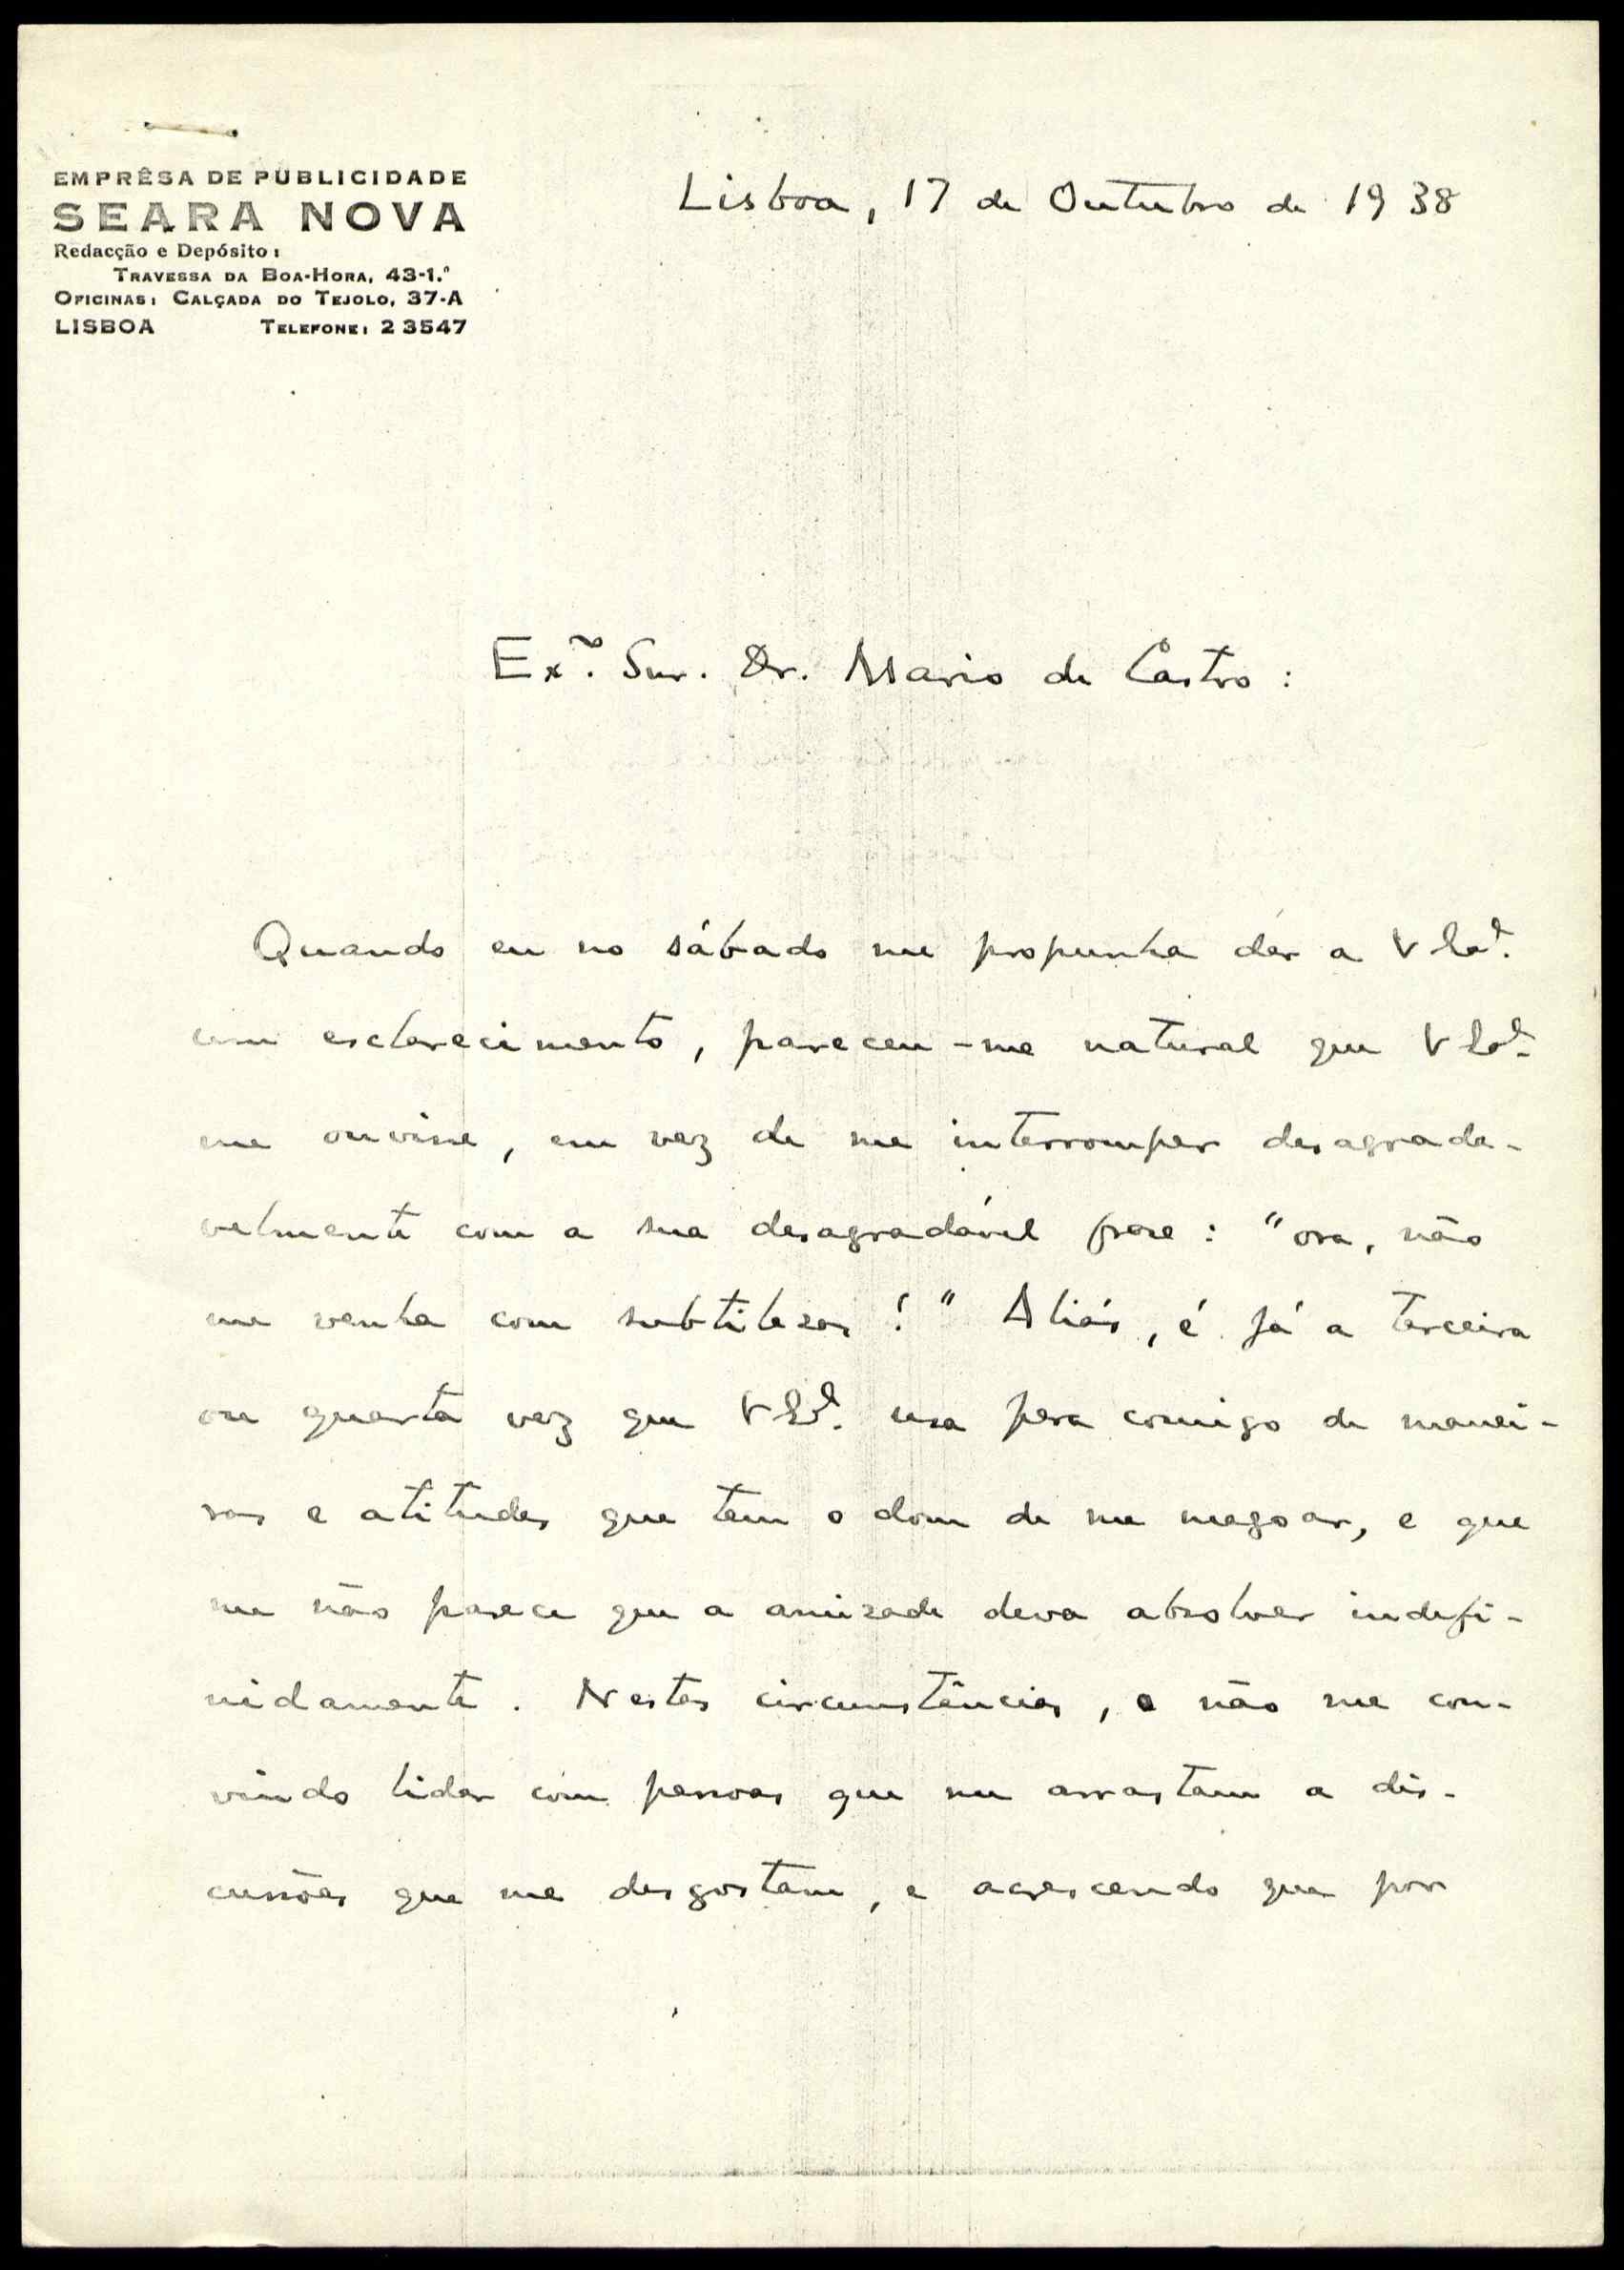 EMPRÊSA DE PUBLICIDADE
SEARA NOVA
Redacção e Depósito:
TRAVESSA DA BOA-HORA, 43-1.º
OFICINAS: CALÇADA DO TEJOLO, 37-A
LISBOA TELEFONE: 2 3547
Lisboa, 17 de Outubro de 1938
Exº. Snr. Dr. Mario de Castro:
Quando eu no sábado me propunha dar a V Exª.
um esclarecimento, pareceu-me natural que V Exª.
me ouvisse, em vez de me interromper desagrada-
velmente com a sua desagradável frase: "ora, não
me venha com subtilezas!" Aliás, é já a terceira
ou quarta vez que V Exª. usa para comigo de manei-
ras e atitudes que tem o dom de me magoar, e que
me não parece que a amizade deva absolver indefi-
nidamente. Nestas circunstâncias, e não me con-
vindo lidar com pessoas que me arrastam a dis-
cussões que me desgostam, e acrescendo que por